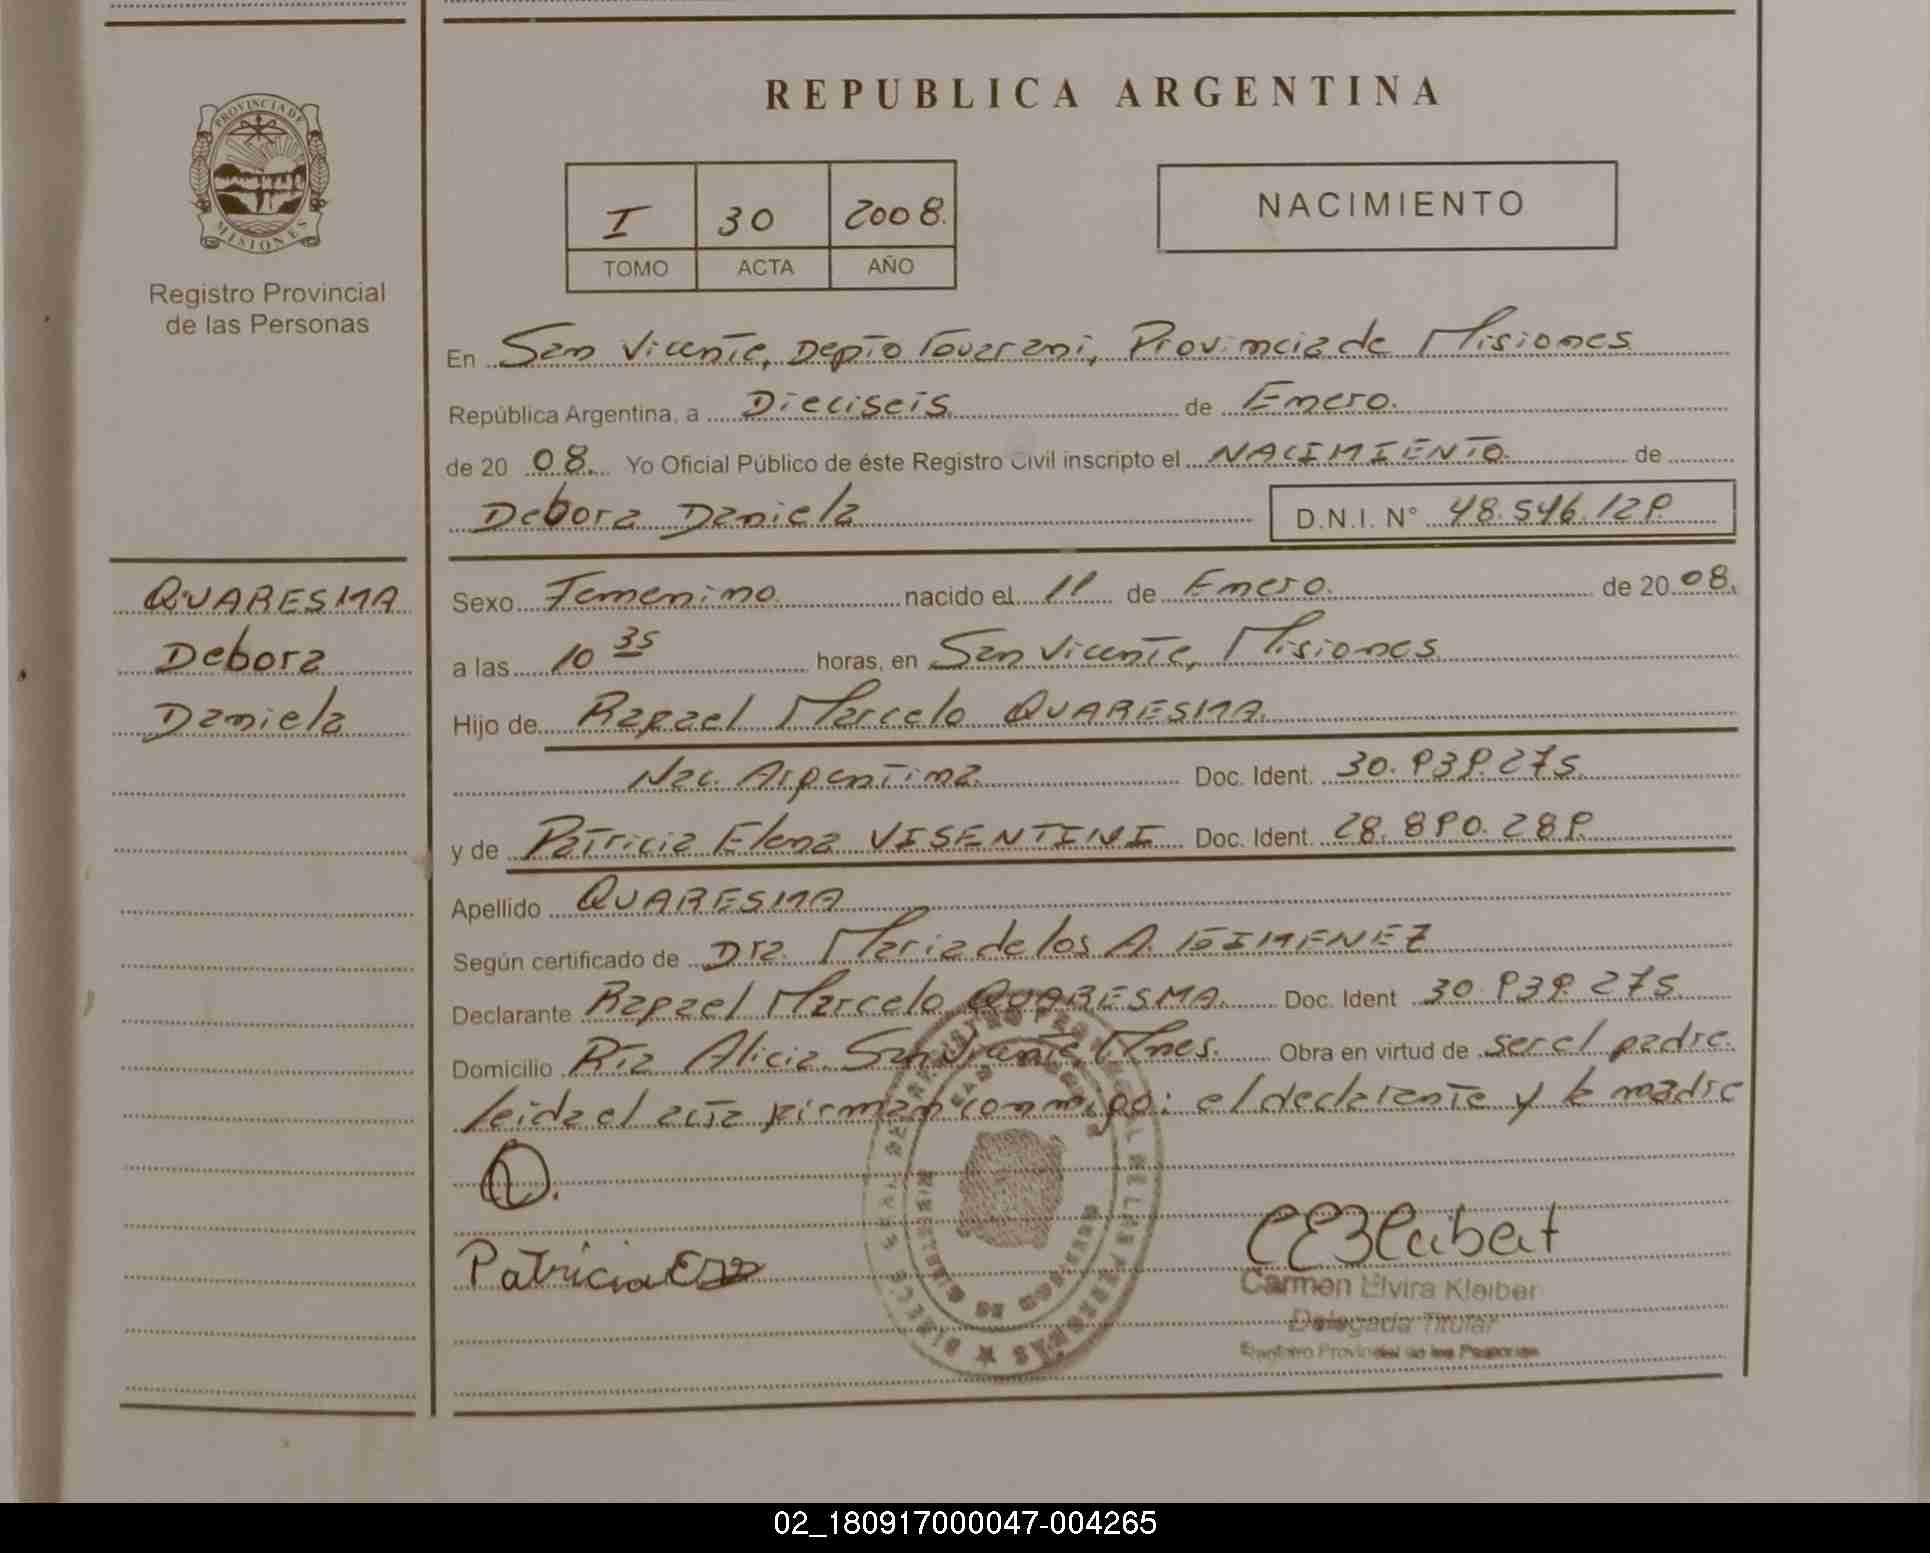 REPUBLICA ARGENTINA
PROVINCIA DE
MISIONES
Registro Provincial
de las Personas
I 30 2008.
TOMO ACTA AÑO
NACIMIENTO
En San Vicente, Depto Guarani, Provincia de Misiones
República Argentina, a Dieciseis de Enero.
de 20 08. Yo Oficial Público de éste Registro Civil inscripto el NACIMIENTO de
Debora Daniela D.N.I. N° 48.546.129
QUARESMA
Debora
Daniela
Sexo Femenino. nacido el 11 de Enero. de 20 08.
a las 10 35 horas, en San Vicente, Misiones
Hijo de Rafael Marcelo QUARESMA.
Nac. Argentina Doc. Ident. 30.939.275.
y de Patricia Elena VISENTINI Doc. Ident. 28.890.289.
Apellido QUARESMA
Según certificado de Dra. Maria de los A. GIMENEZ
Declarante Rafael Marcelo QUARESMA. Doc. Ident 30.939.275.
Domicilio Pta Alicia. San Vicente, Mnes. Obra en virtud de ser el padre.
leida el acta firman conmigo: el declarante y la madre
Patricia
Carmen Elvira Kleiber
Delegada Titular
Registro Provincial de las Personas
02_180917000047-004265